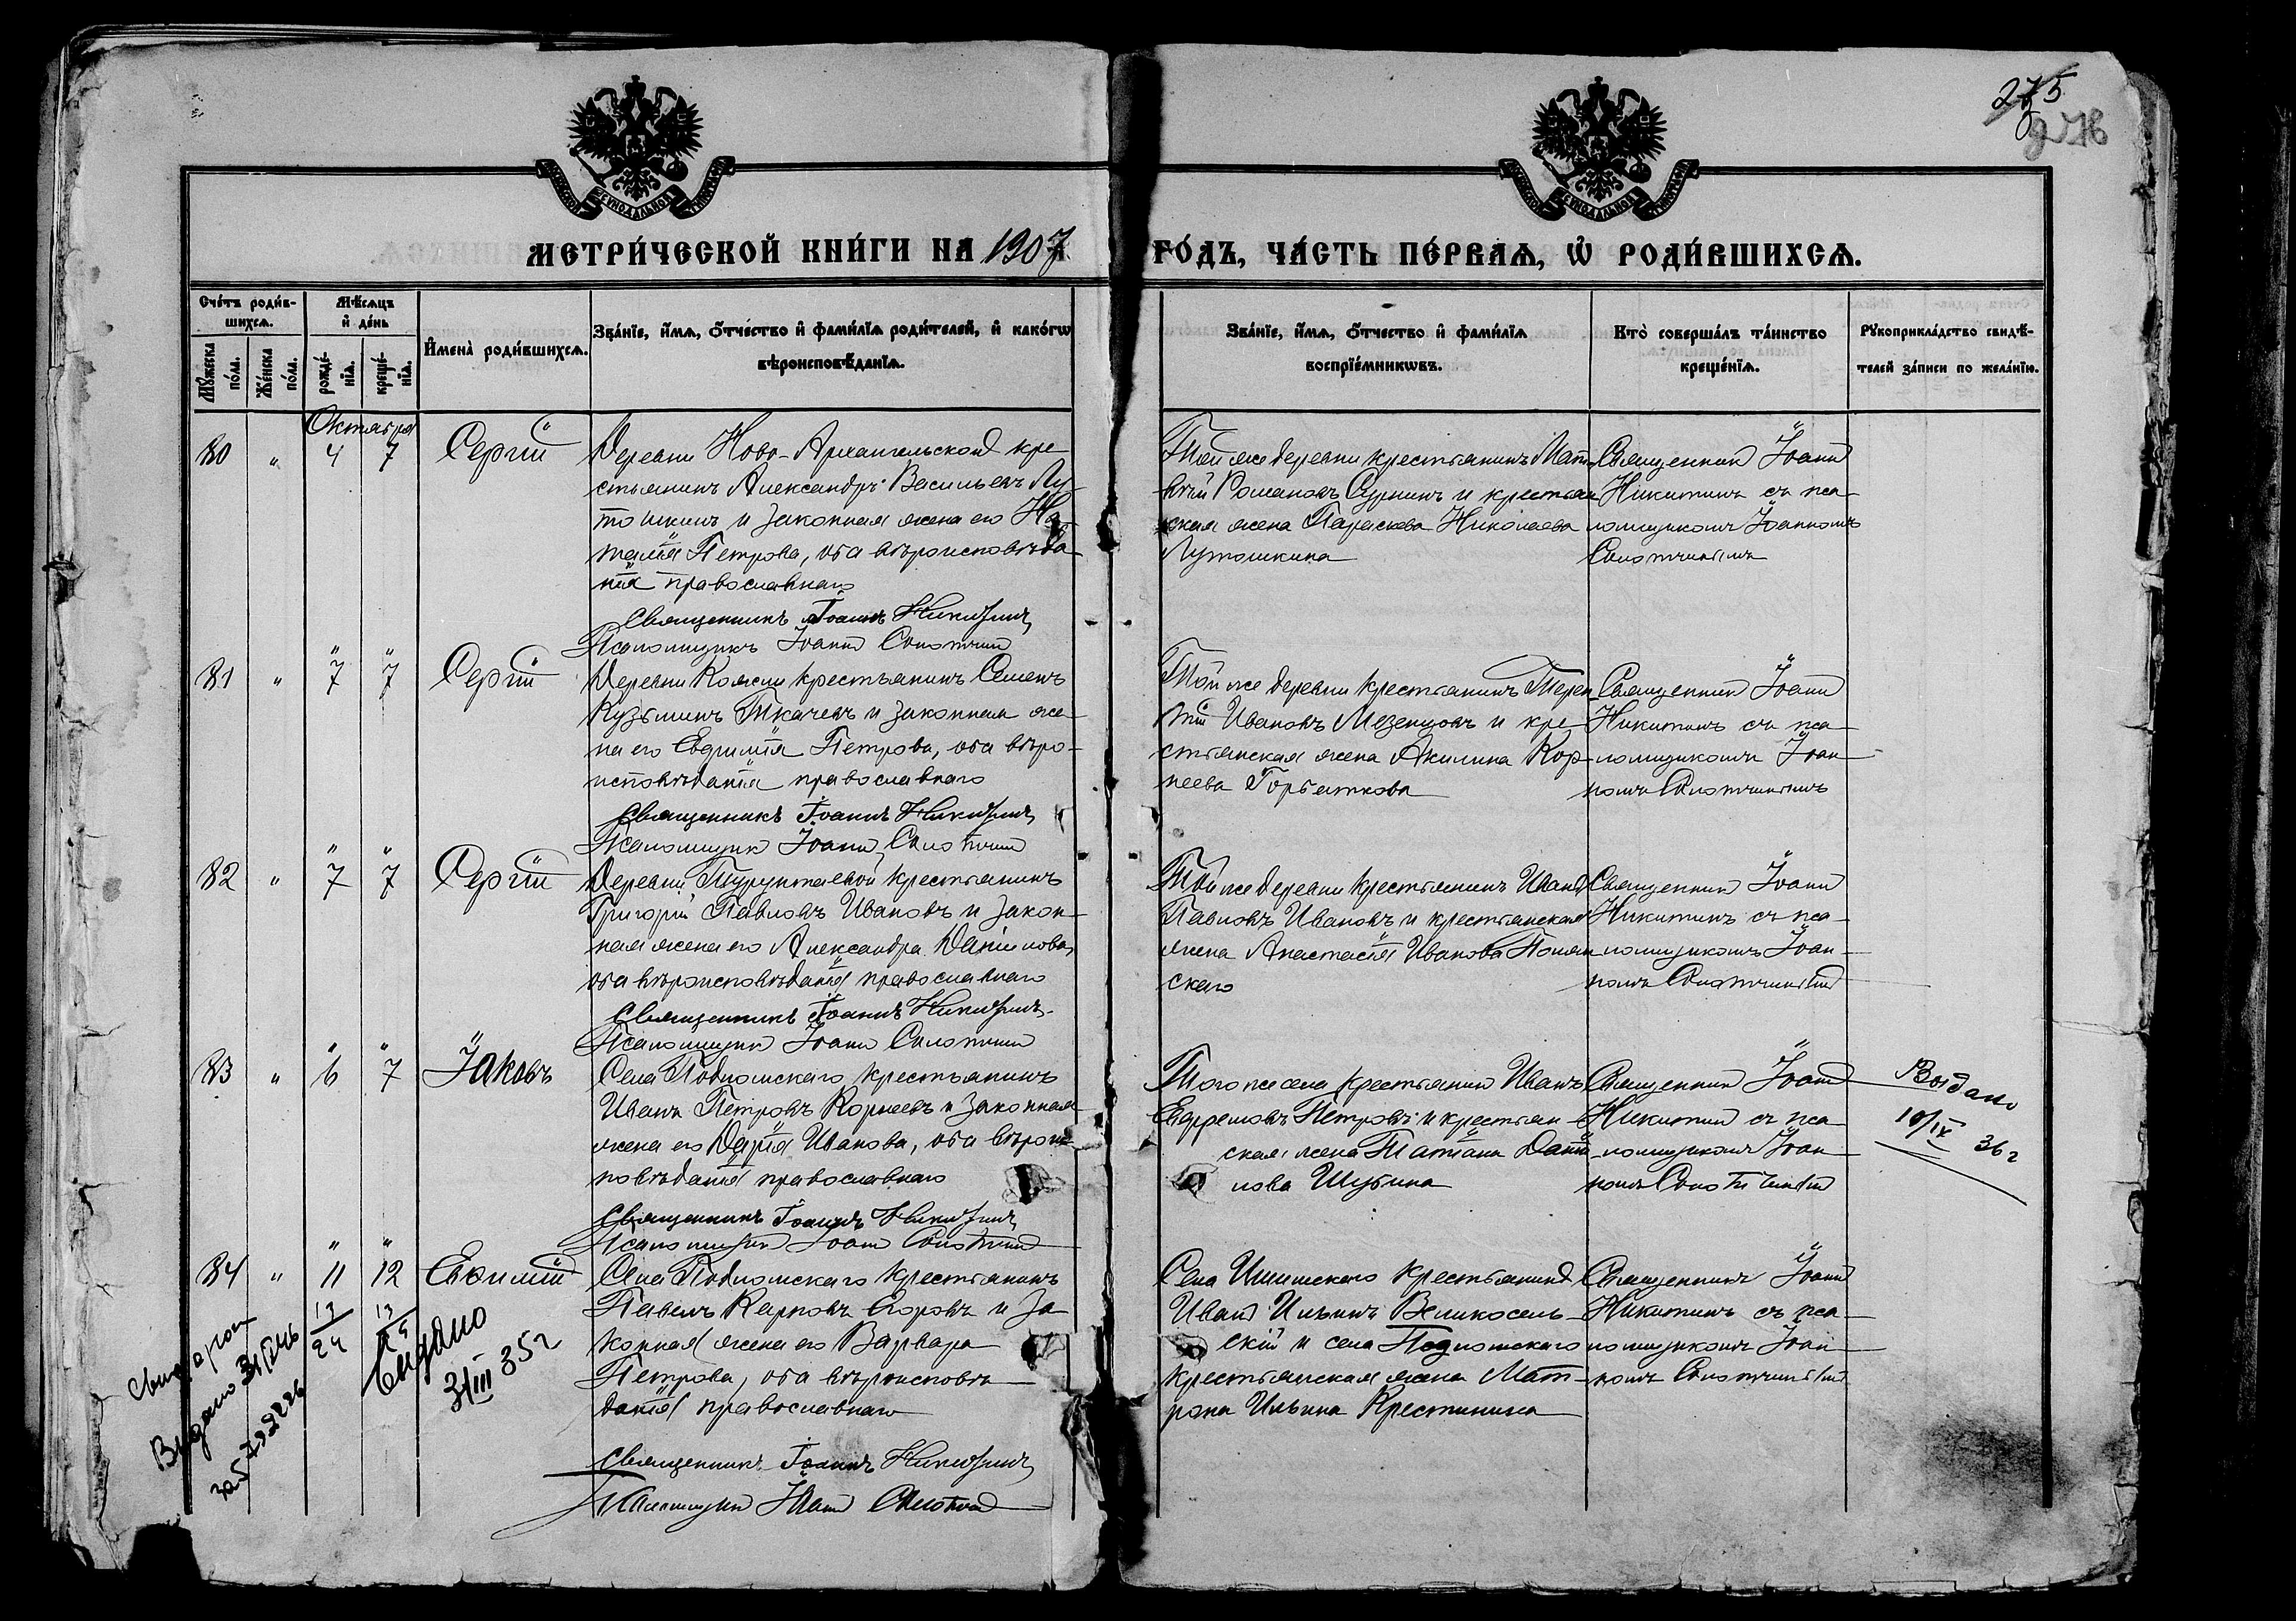 275
276
МЕТРИ́ЧЕСКОЙ КНИ́ГИ НА 1907
ГО́ДЪ, ЧА́СТЬ ПЕ́РВАѦ, Ѡ҆ РОДИ́ВШИХСѦ.
Сче́тъ роди́в-
шихсѧ.
Мꙋ́жеска по́ла.
Же́нска по́ла.
Мѣ́сѧцъ
и҆ де́нь
рожде́-
нїѧ.
креще́-
нїѧ.
И҆мена̀ роди́вшихсѧ.
Зва́нїе, и҆́мѧ, ѻ҆́тчество и҆ фами́лїѧ роди́телей, и҆ како́гѡ
вѣроисповѣ́данїѧ.
Зва́нїе, и҆́мѧ, ѻ҆́тчество и҆ фами́лїѧ
воспрїе́мникѡвъ.
Кто̀ соверша́лъ та́инство
креще́нїѧ.
Рꙋкоприкла́дство свидѣ́-
телей за́писи по жела́нїю.
Октября
80 " 4 7 Сергій
Деревни Ново-Архангельской кре
стьянинъ Александръ Васильевъ Лу-
тошкинъ и законная жена его На
талія Петрова, оба вѣроисповѣда-
нія православнаго
Священникъ Іоаннъ Никитинъ
Псаломщикъ Іоаннъ
Той же деревни крестьянинъ Мат-
вѣй Романовъ и крестьян
ская жена Параскева Николаева
Лутошкина
Священникъ Іоаннъ
Никитинъ съ пса-
ломщикомъ Іоанномъ
81 " 7 7 Сергій
Деревни крестьянинъ Семенъ
Кузьминъ Ткачевъ и законная же-
на его Евфимія Петрова, оба вѣро-
исповѣданія православнаго
Священникъ Іоаннъ Никитинъ
Псаломщикъ Іоаннъ
Той же деревни крестьянинъ Терен
тій Ивановъ Мезенцовъ и кре-
стьянская жена Акилина Кор-
неева Горбаткова
Священникъ Іоаннъ
Никитинъ съ пса-
ломщикомъ Іоан-
номъ
82 " 7 7 Сергій
Деревни Турунтаевой крестьянинъ
Григорій Павловъ Ивановъ и закон-
ная жена его Александра Данилова,
оба вѣроисповѣданія православнаго
Священникъ Іоаннъ Никитинъ
Псаломщикъ Іоаннъ
Той же деревни крестьянинъ Иванъ
Павловъ Ивановъ и крестьянская
жена Анастасія Иванова Полян
скаго
Священникъ Іоаннъ
Никитинъ съ пса-
ломщикомъ Іоан-
номъ
83 " 6 7 Іаковъ
Села Подломскаго крестьянинъ
Иванъ Петровъ Корнеевъ и законная
жена его Дарія Иванова, оба вѣроис-
повѣданія православнаго
Священникъ Іоаннъ Никитинъ
Псаломщикъ Іоаннъ
Того же села крестьянин Иванъ
Ефремовъ Петровъ и крестьян-
ская жена Татіана Дани
лова Шубина
Священникъ Іоаннъ
Никитинъ съ пса
ломщикомъ Іоан
номъ
Выдано
10/IX 36 г
84 " 11 12 Евѳимій
13/24 13/25
Села Подломскаго крестьянинъ
Павелъ Карповъ Егоровъ и за
конная жена его Варвара
Петрова, оба вѣроисповѣ
данія православнаго
Священникъ Іоаннъ Никитинъ
Псаломщикъ Іоаннъ
Села Ишимскаго крестьянинъ
Иванъ Ильинъ Великосель-
скій и села Подломскаго
крестьянская жена Мат-
рона Ильина Крестинина
Священникъ Іоаннъ
Никитинъ съ пса-
ломщикомъ Іоан-
номъ
Выдано
31/III 35 г
Выдано